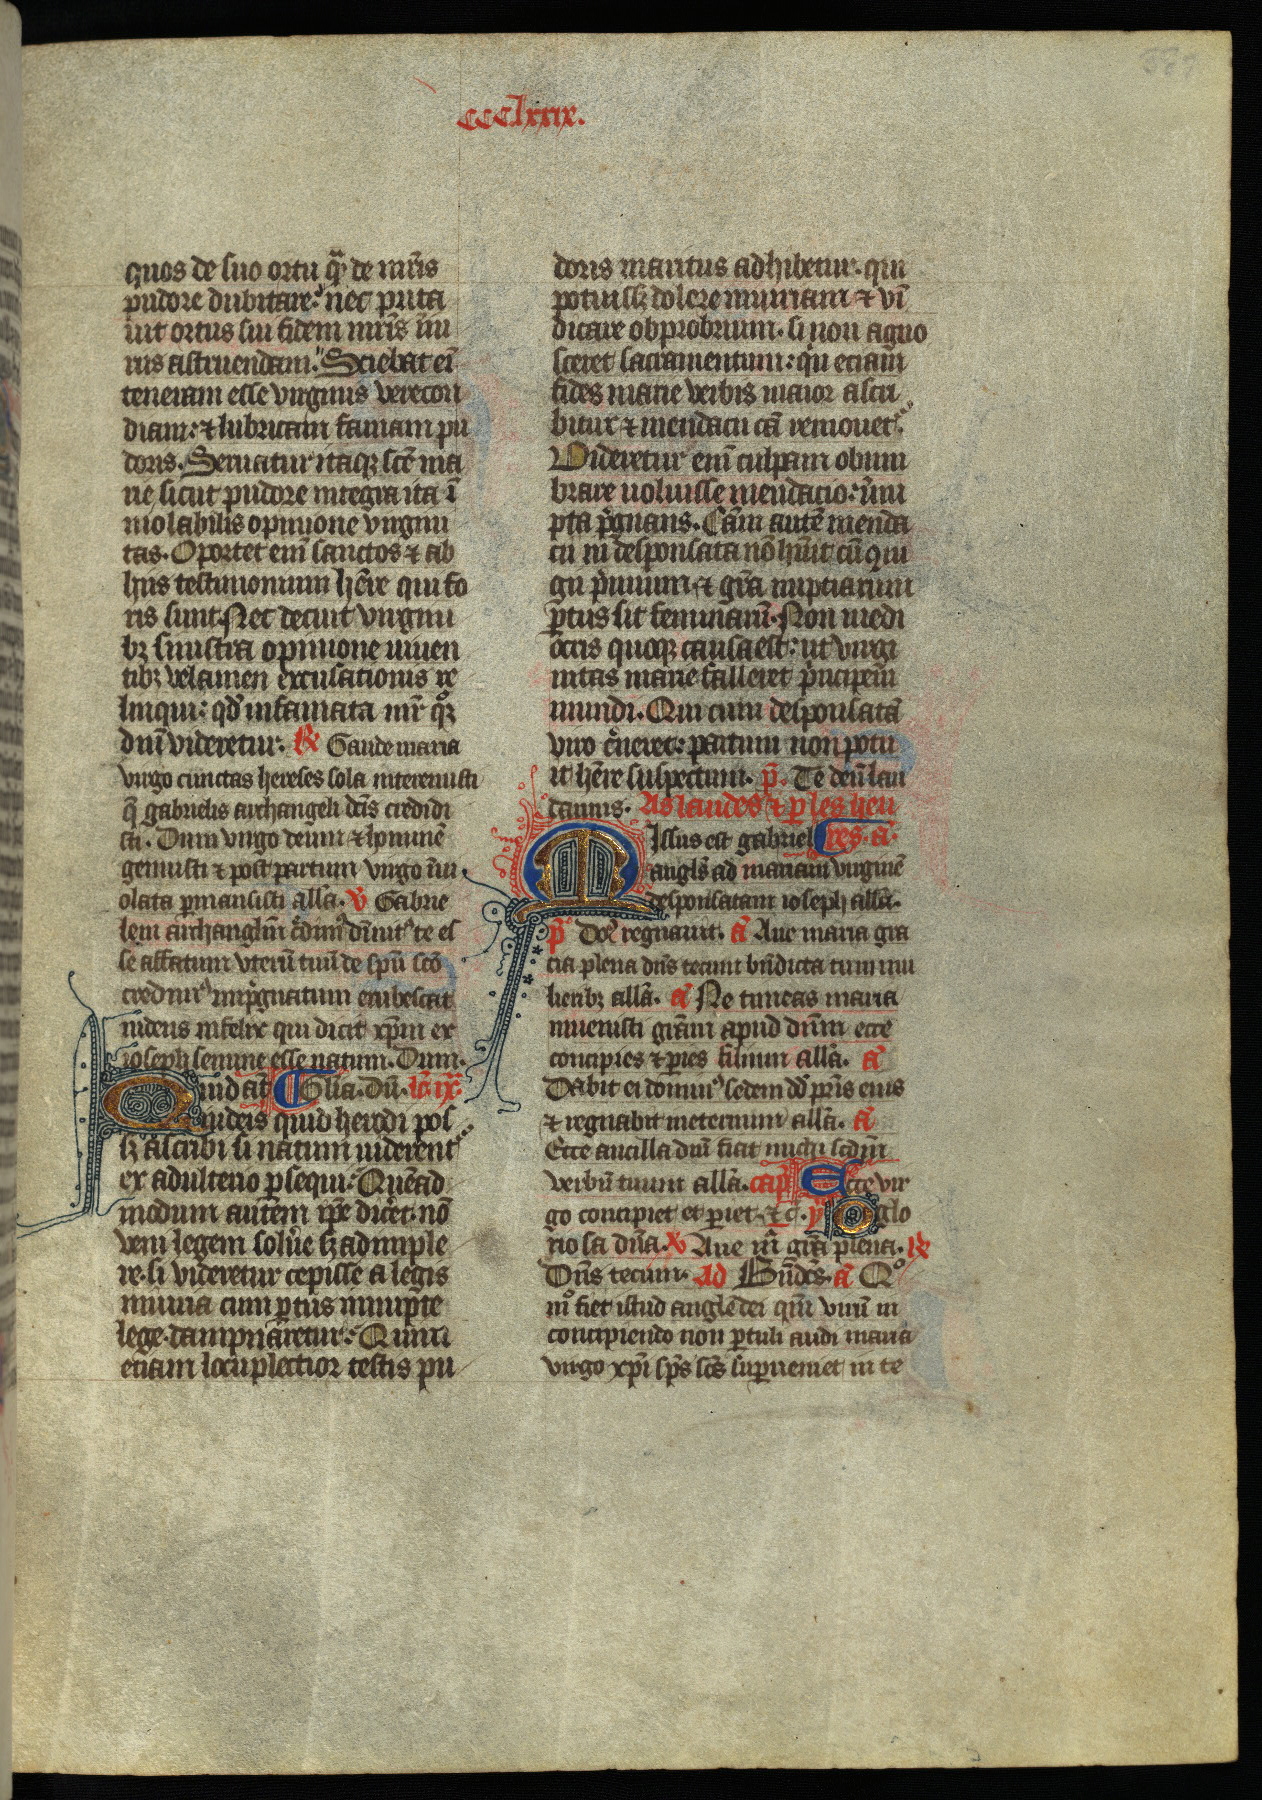 ccclxxix.
quos de suo ortu q̄ de mr̄is
pudore dubitare. nec puta
uit ortus sui fidem mr̄is iniu
riis astruendam. Sciebat eī
teneram esse virginis verecon
diam: ⁊ lubricam famam pu
doris. Seruatur itaqꝫ sc̄e ma
rie sicut pudore integra ita ī
uiolabilis opinione virgini
tas. Oportet enī sanctos ⁊ ab
hiis testimonium hēre qui fo
ris sunt. Nec decuit virgini
bꝫ sinistra opinione uiuen
tibꝫ velamen excusationis re
linqui: qd̄ infamata mr̄ qꝫ
dn̄i videretur. R̄ Gaude maria
virgo cunctas hereses sola interemisti
q̄ gabrielis archangeli dc̄is credidi
sti. Dum virgo deum ⁊ hominē
genuisti ⁊ post partum virgo īui
olata ꝑmansisti allā. v̄ Gabrie
lem archangl̄m c̄dimꝰ diuinitꝰ te es
se affatum vterū tuū de sp̄u sc̄o
credimꝰ imp̄gnatum erubescat
iudeus infelix qui dicit xp̄m ex
ioseph semine esse natum. Dum.
uid at̄ Glīa. Dū. lc̄. ix.
iudeis quid herodi pos
sꝫ ascribi si natum viderent
ex adulterio ꝑsequi. Quēad
modum autem ip̄e dic̄et: nō
veni legem solūe sꝫ adimple
re. si videretur cepisse a legis
iniuria cum ꝑtus innupte
lege dampnaretur. Quid
etiam locuplectior testis pu
doris maritus adhibetur. qui
potuissꝫ dolere iniuriam ⁊ vī
dicare obprobrium. si non agno
sceret sacramentum: qn̄ etiam
fides marie verbis maior asci
bitur ⁊ mendacii cā remouet̄.
Videretur enī culpam obum
brare uoluisse mendacio: inu
pta p̄gnans. Cām autē menda
cii in desponsata nō hūit cū qui
gii p̄mium ⁊ gr̄a nuptiarum
ꝑtus sit feminarū. Non medi
ocris quoqꝫ causa est: ut virgi
nitas marie falleret p̄ncipem
mundi. Qui cum desponsatā
viro c̄neret: partum non potu
it hēre suspectum. p̄. Te deū lau
damus. As laudes ⁊ ꝑ les heu
Issus est gabriel res. a̅.
angl̄s ad mariam virginē
desponsatam ioseph allā.
p̄ Dn̄s regnauit. a̅ Aue maria gra
cia plena dn̄s tecum bn̄dicta tu in mu
lieribꝫ allā. a̅ Ne timeas maria
inuenisti grām apud dn̄m ecce
concipies ⁊ ꝑies filium allā. a̅
Dabit ei dominꝰ sedem dd̄ pr̄is eius
⁊ regnabit ineternum allā. a̅
Ecce ancilla dn̄i fiat michi scdm̄
verbū tuum allā. cap̄ Ecce vir
go concipiet et pariet. ⁊ c̄. y̅ O glo
riosa dn̄a. v̄ Aue m̄ gr̄a plena. R̄
Dn̄s tecum. Ad Bn̄dc̄s. a̅ Qͦ
mͦ fiet istud angle dei qm̄ virū in
concipiendo non ꝑtuli audi maria
virgo xp̄i sp̄s sc̄s suꝑueniet in te